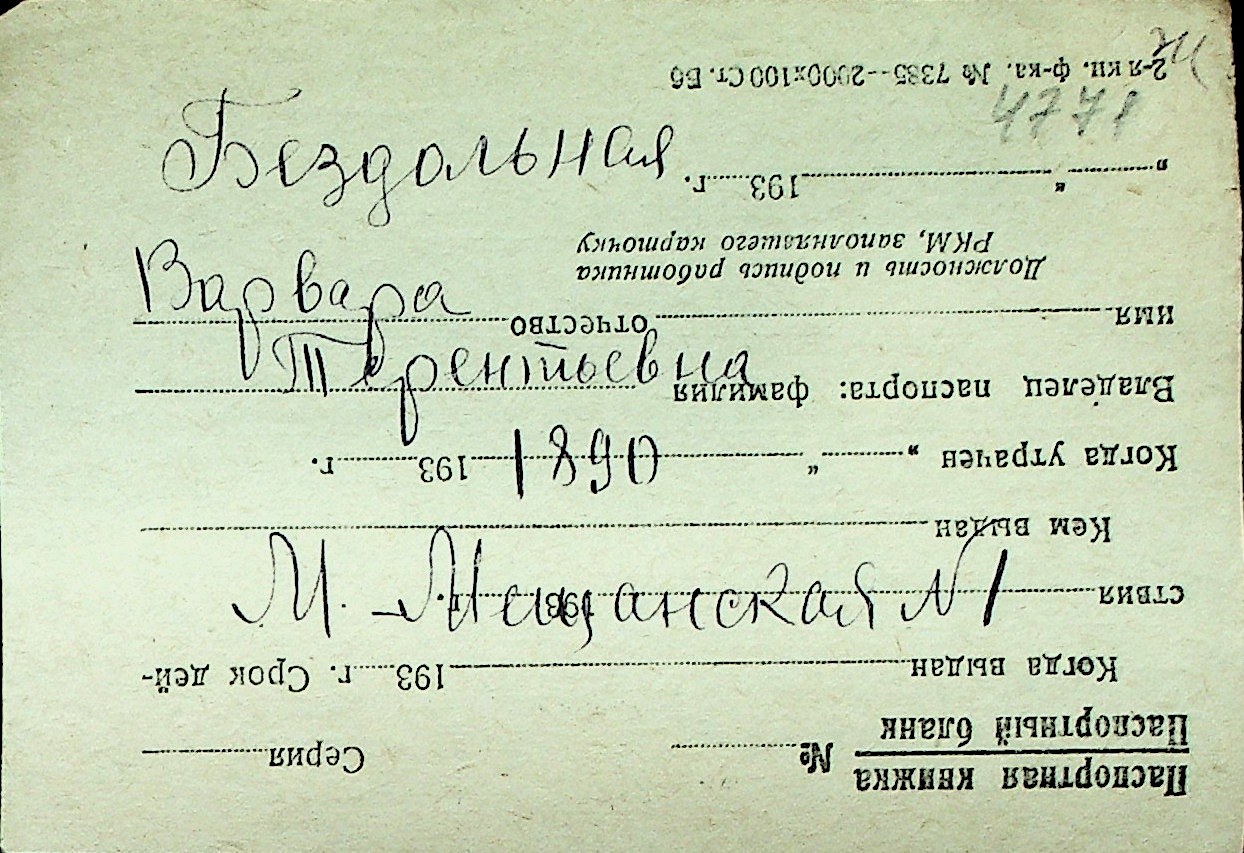 Бездольная
Варвара
Терентьевна
1890
М. Мещанская №1
4771
Паспортная книжка
Паспортный бланк
№ Серия
Когда выдан 193 г. Срок дей-
ствия 193 г.
Кем выдан
Когда утрачен „ “ 193 г.
Владелец паспорта: фамилия
имя отчество
Должность и подпись работника
РКМ, заполнявшего карточку
„ “ 193 г.
2-я кн. ф-ка. № 7385--2000х100 Ст. Бб